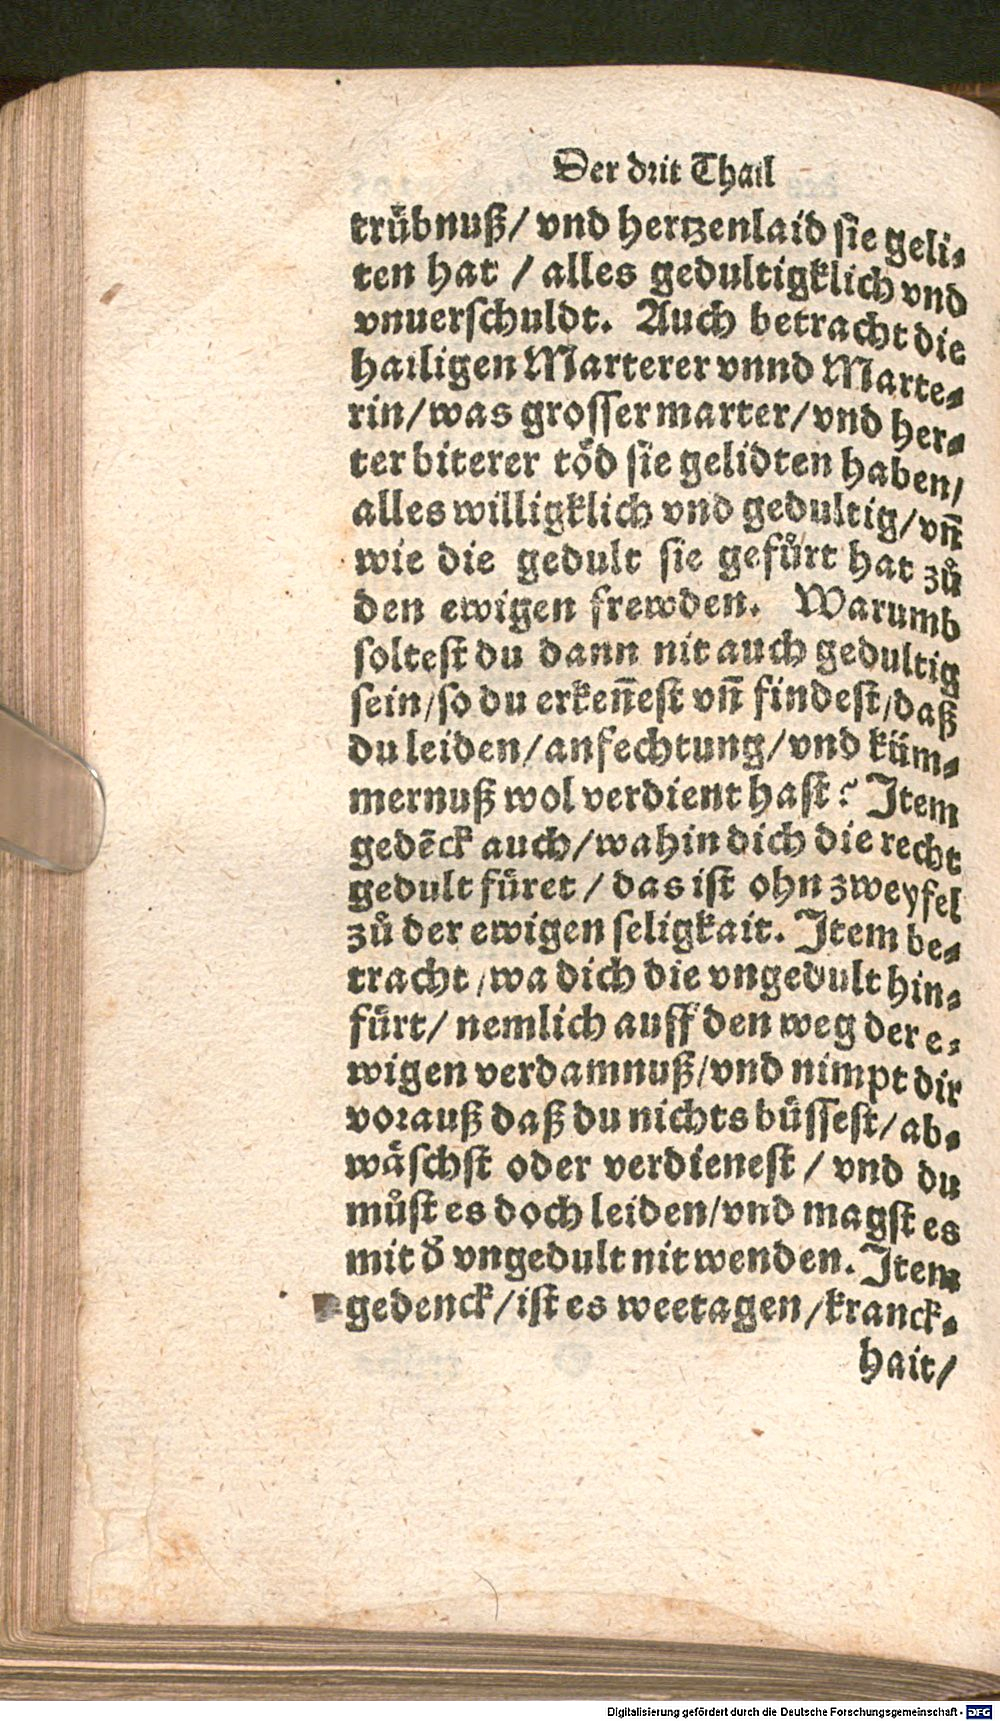 Der drit Thail
trübnuß/ vnd hertzenlaid sie geli-
ten hat / alles gedultigklich vnd
vnuerschuldt. Auch betracht die
hailigen Marterer vnnd Marte-
rin/was grosser marter/vnd her-
ter biterer töd sie gelidten haben/
alles willigklich vnd gedultig/vñ
wie die gedult sie gefuͤrt hat zuͦ
den ewigen frewden. Warumb
soltest du dann nit auch gedultig
sein/so du erkeñest vñ findest/daß
du leiden/anfechtung/vnd küm-
mernuß wol verdient hast? Item
gedẽck auch/wahin dich die recht
gedult fuͤret / das ist ohn zweyfel
zuͦ der ewigen seligkait. Item be-
tracht/wa dich die vngedult hin-
fuͤrt/ nemlich auff den weg der e-
wigen verdamnuß/vnd nimpt dir
vorauß daß du nichts buͤssest/ab-
wäschst oder verdienest / vnd du
muͦst es doch leiden/vnd magst es
mit d' vngedult nit wenden. Item
gedenck/ist es weetagen/kranck-
hait/
Digitalisierung gefördert durch die Deutsche Forschungsgemeinschaft - DFG